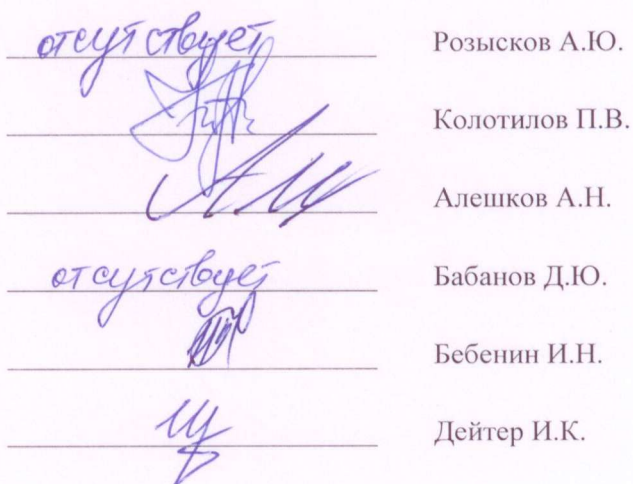 отсутствует Розысков А.Ю.
Колотилов П.В.
Алешков А.Н.
отсутствует Бабанов Д.Ю.
Бебенин И.Н.
Дейтер И.К.